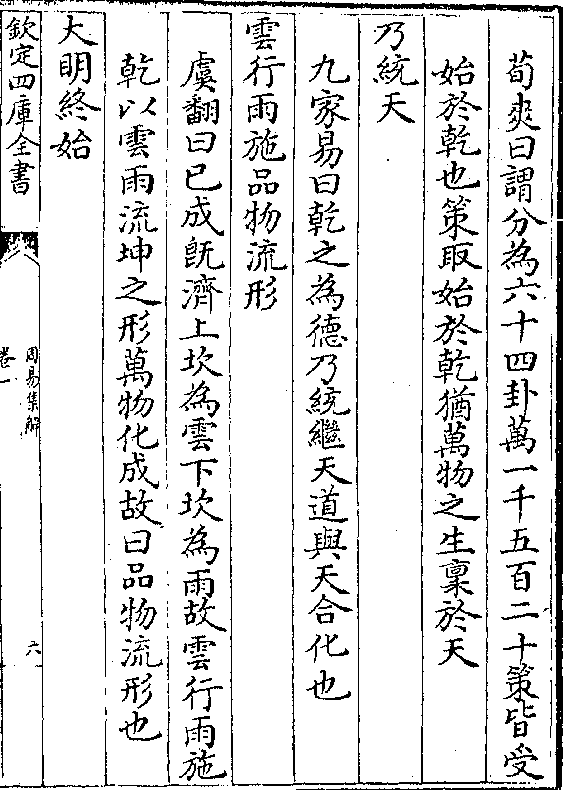 荀爽曰謂分為六十四卦萬一千五百二十策皆受
始於乾也策取始於乾猶萬物之生稟於天
乃統天
九家易曰乾之為德乃統繼天道與天合化也
雲行雨施品物流形
虞翻曰已成旣濟上坎為雲下坎為雨故雲行雨施
乾以雲雨流坤之形萬物化成故曰品物流形也
大明終始
欽定四庫全書
周易集解
卷一
六